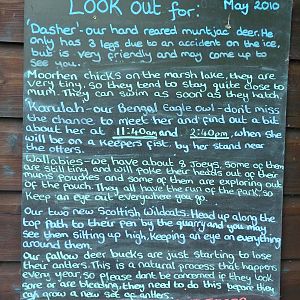 Look out for: May 2010
'Dasher'-our hand reared muntjac deer. He
only has 3 legs due to an accident on the ice,
but is very friendly and may come up to
see you.
Moorhen chicks on the marsh lake, they are
very tiny, so they tend to stay quite close to
mum. They can swim as soon as they hatch
Karulah-our Bengal Eagle owl-don't miss
the chance to meet her and find out a bit
about her at 11:40am and 2:40pm, when she
will be on a keepers fist, by her stand near
the otters
Wallabies-we have about 8 Joeys, some of them
are still tiny and will poke their heads out of their
mums pouches and some of them are exploring out
of the pouch. They all have the run of the park, so
keep an eye out everywhere you go.
Our two new Scottish Wildcats. Head up along the
top path to their pen by the quarry and you may
see them sitting up high, keeping an eye on everything
around them.
Our fallow deer bucks are just starting to lose
their antlers. This is a natural process that happens
every year, so please dont be concerned if they look
sore or are bleeding, they need to do this before they
can grow a new set of antlers.